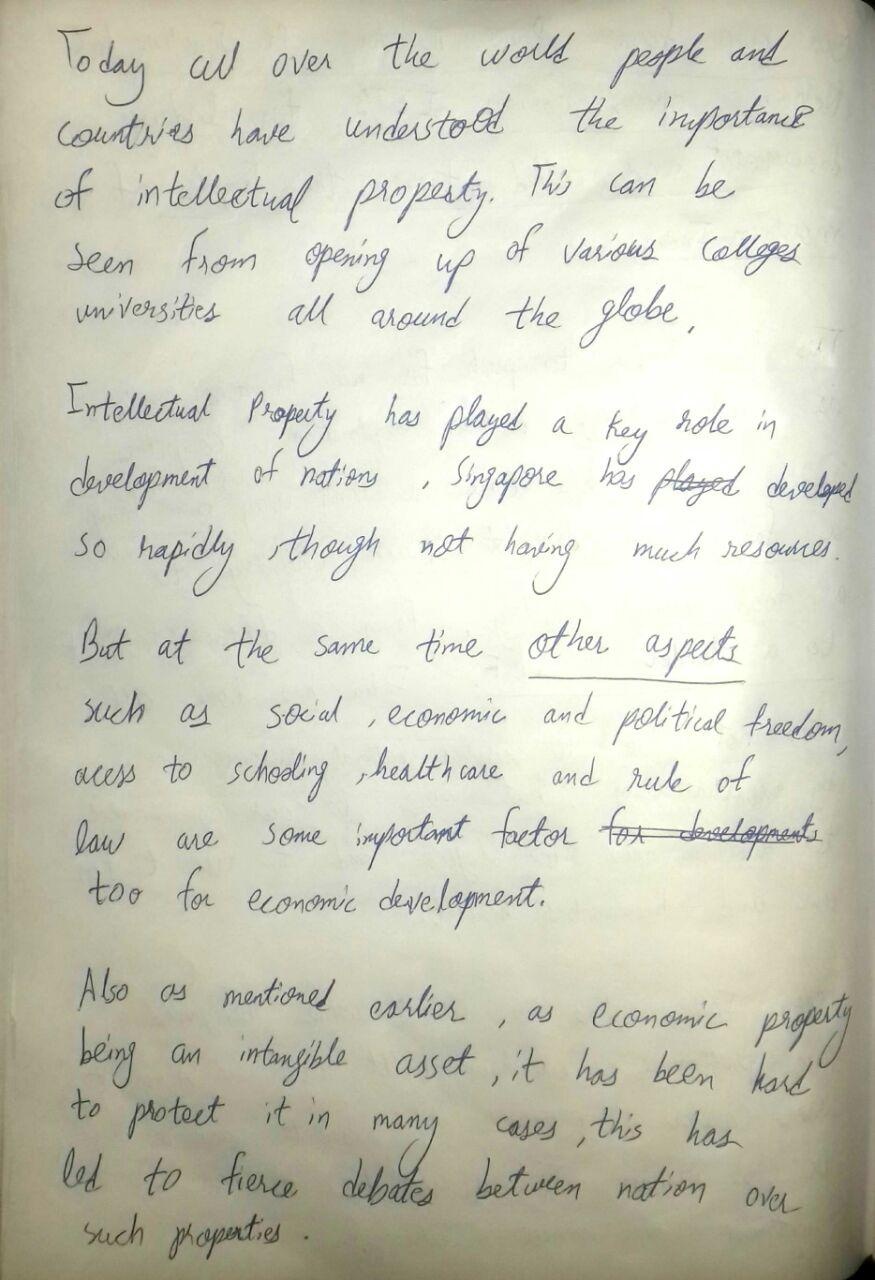 Today all over the world people and
countries have understood the importance
of intellectual property. This can be
seen from opening up of various colleges
universities all around the globe,
Intellectual Property has played a key role in
development of nations , Singapore has played developed
so rapidly , though not having much resources.
But at the same time other aspects
such as social , economic and political freedom,
acess to schooling , healthcare and rule of
law are some important factor for developments
too for economic development.
Also as mentioned earlier , as economic property
being an intangible asset , it has been hard
to protect it in many cases , this has
led to fierce debates between nation over
such properties .